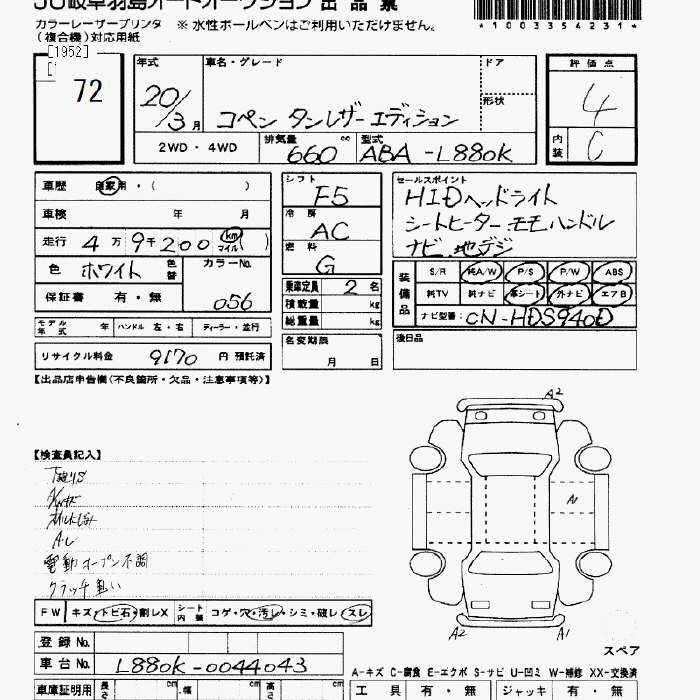 JU岐阜羽島オートオークション 出品票
カラーレーザープリンタ ※水性ボールペンはご利用いただけません。
(複合機)対応用紙
*1003354231*
[1952]
72
年式 車名・グレード ドア 評価点
20/3月 コペン タンレザーエディション 形状 4
2WD・4WD 排気量 660 cc 型式 ABA-L880K 内装 C
車歴 自家用・( )
車検 年 月
走行 4万9千200 km マイル ( )
色 ホワイト 色替 カラーNo. 056
保証書 有・無
モデル年式 年 ハンドル 左・右 ディーラー・並行
リサイクル料金 9170 円 預託済
シフト F5
冷房 AC
燃料 G
乗車定員 2 名
積載量 kg
総重量 kg
名変期限 月 日
セールスポイント
HIDヘッドライト
シートヒーター モモハンドル
ナビ 地デジ
装備品 S/R 純A/W P/S P/W ABS
純TV 純ナビ 革シート 外ナビ エアB
ナビ型番: CN-HDS940D
後日品
【出品店申告欄(不良箇所・欠品・注意事項等)】
【検査員記入】
電動オープン不調
クラッチ重い
FW キズ・トビ石・割レX シート内装 コゲ・穴・汚レ・シミ・破レ・スレ
登録No.
車台No. L880K-0044043
車庫証明用 長さ cm 幅 cm 高さ cm
A2
N
A2
A1
スペア
A-キズ C-腐食 E-エクボ S-サビ U-凹ミ W-補修 XX-交換済
工具 有・無 ジャッキ 有・無